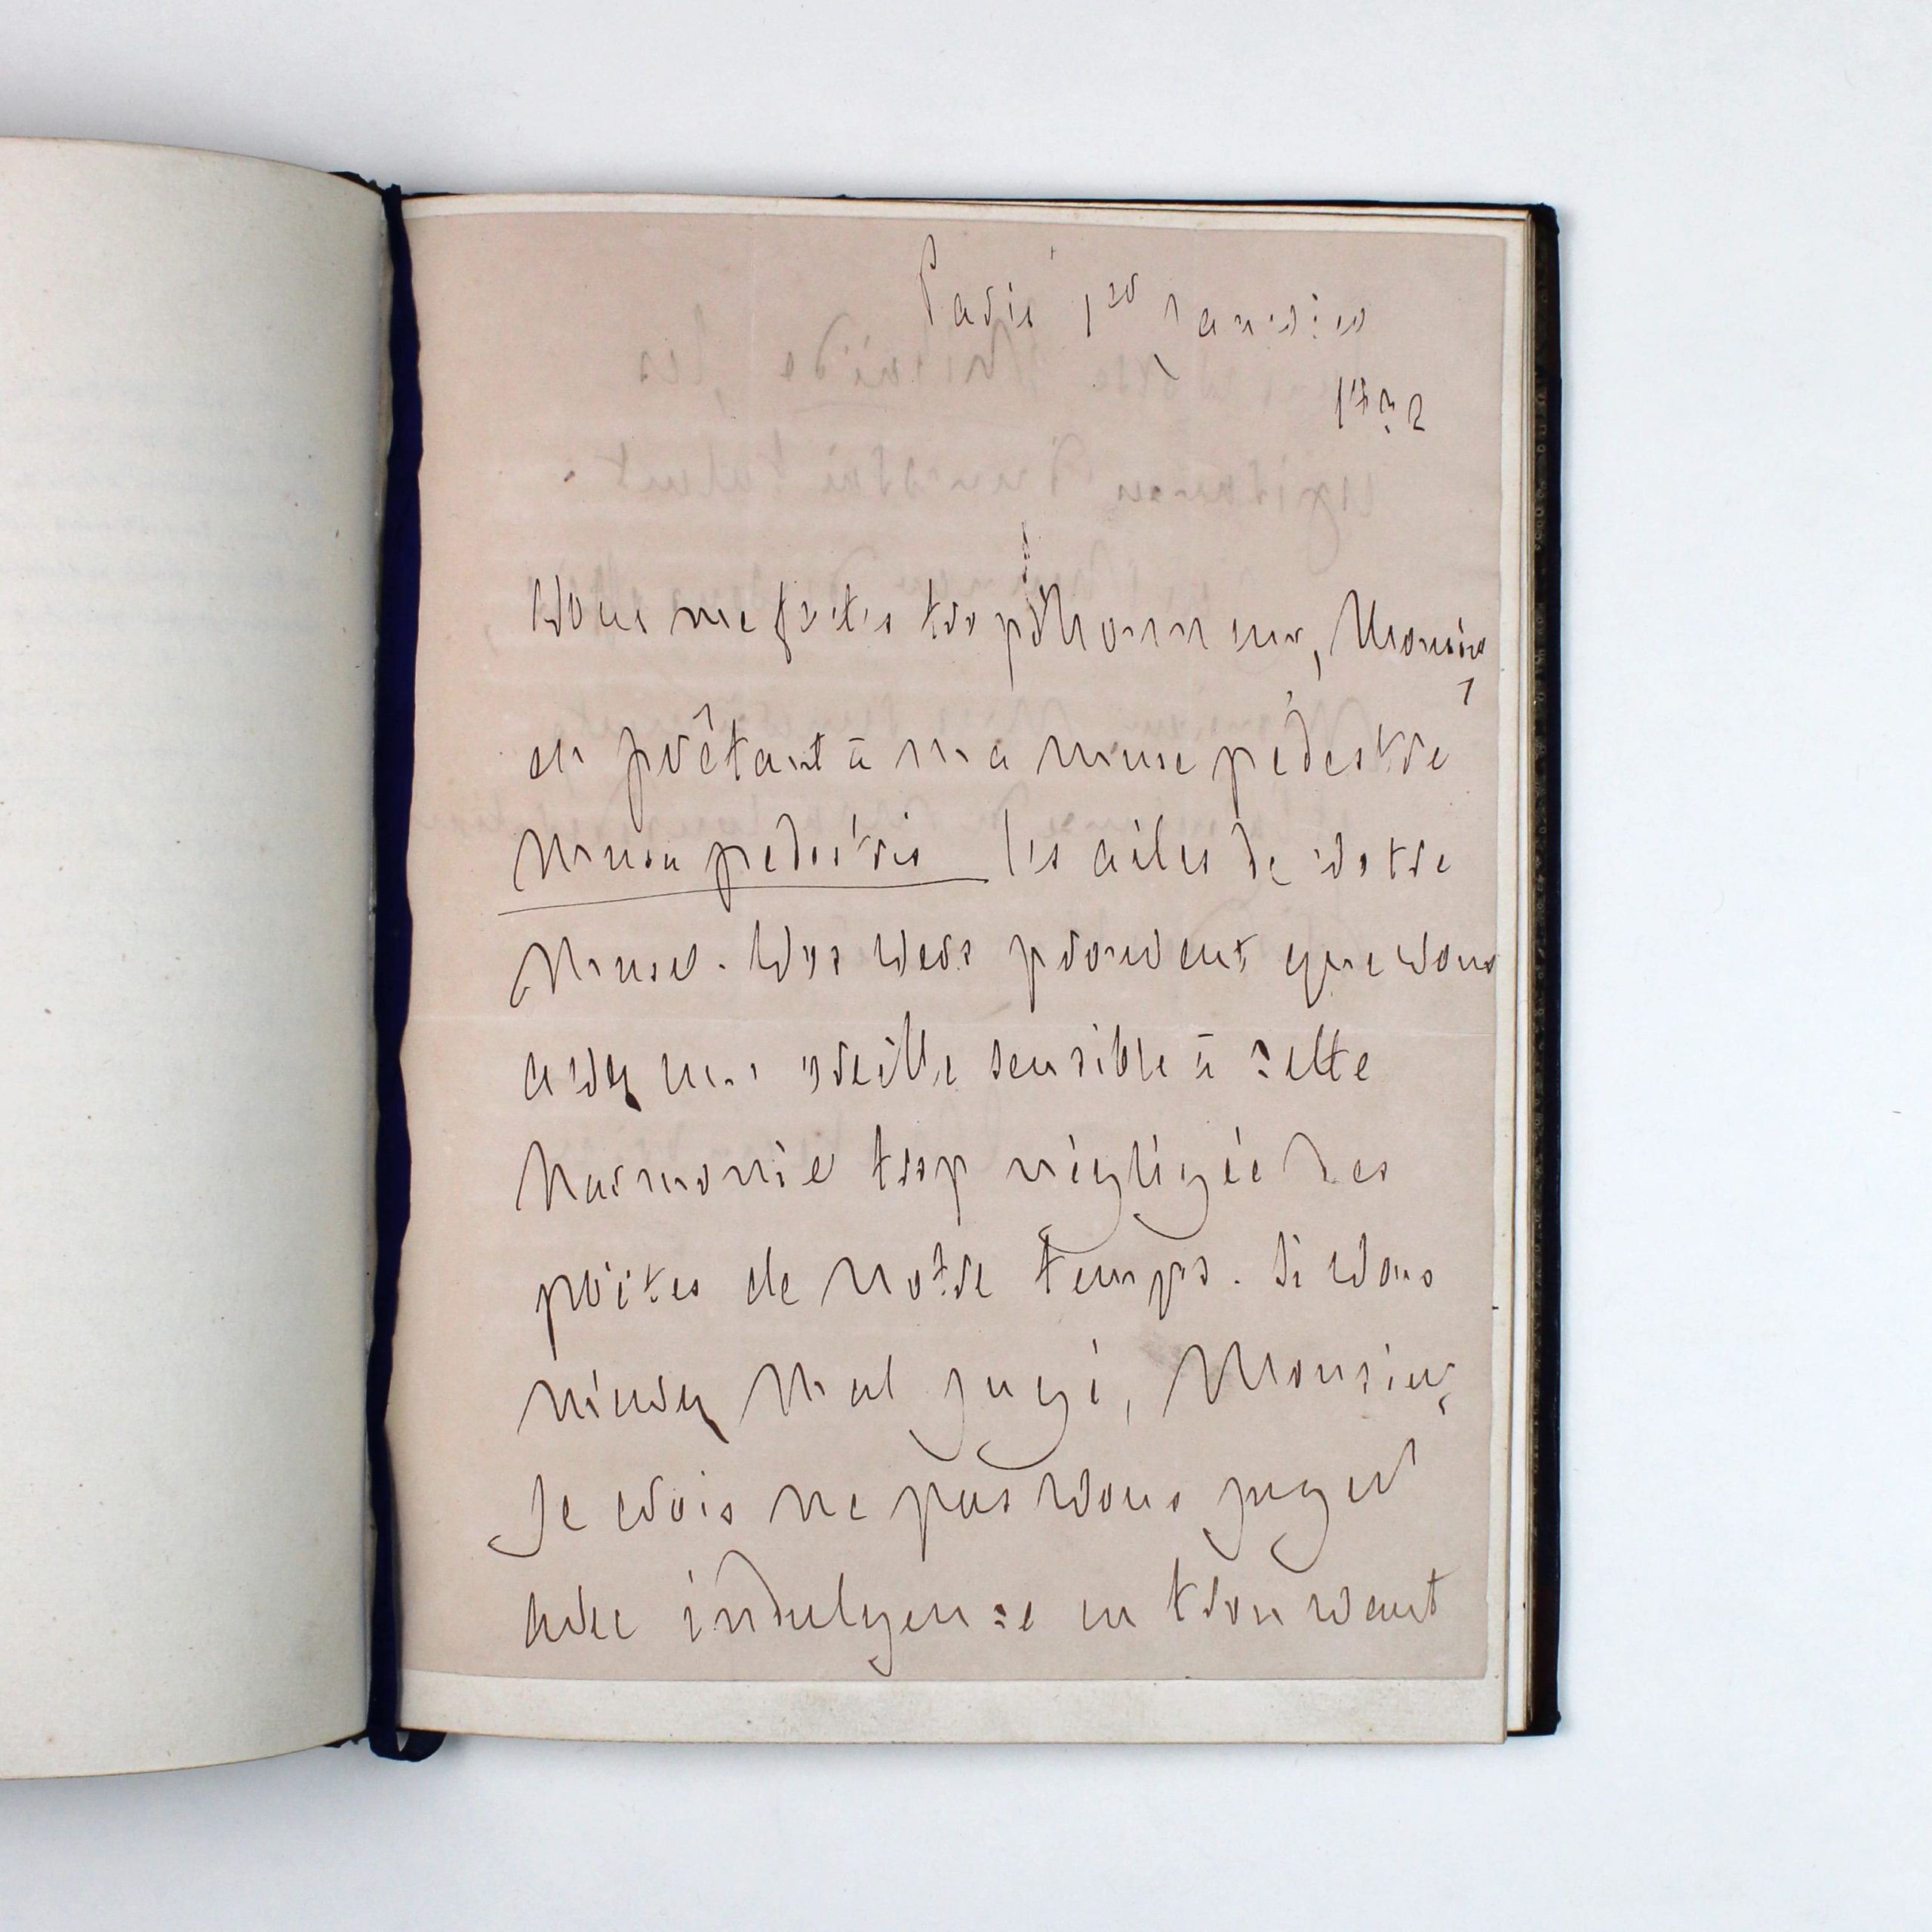 Paris 1er Janvier
Vous me faites trop d'honneur, Monsieur,
en prêtant à ma muse pédestre
Musa pedestris les ailes de votre
Muse. Vos vers prouvent que vous
avez une oreille sensible à cette
harmonie trop négligée des
poëtes de notre temps. Si vous
m'avez mal jugé, Monsieur,
Je crois ne pas vous juger
avec indulgence en trouvant